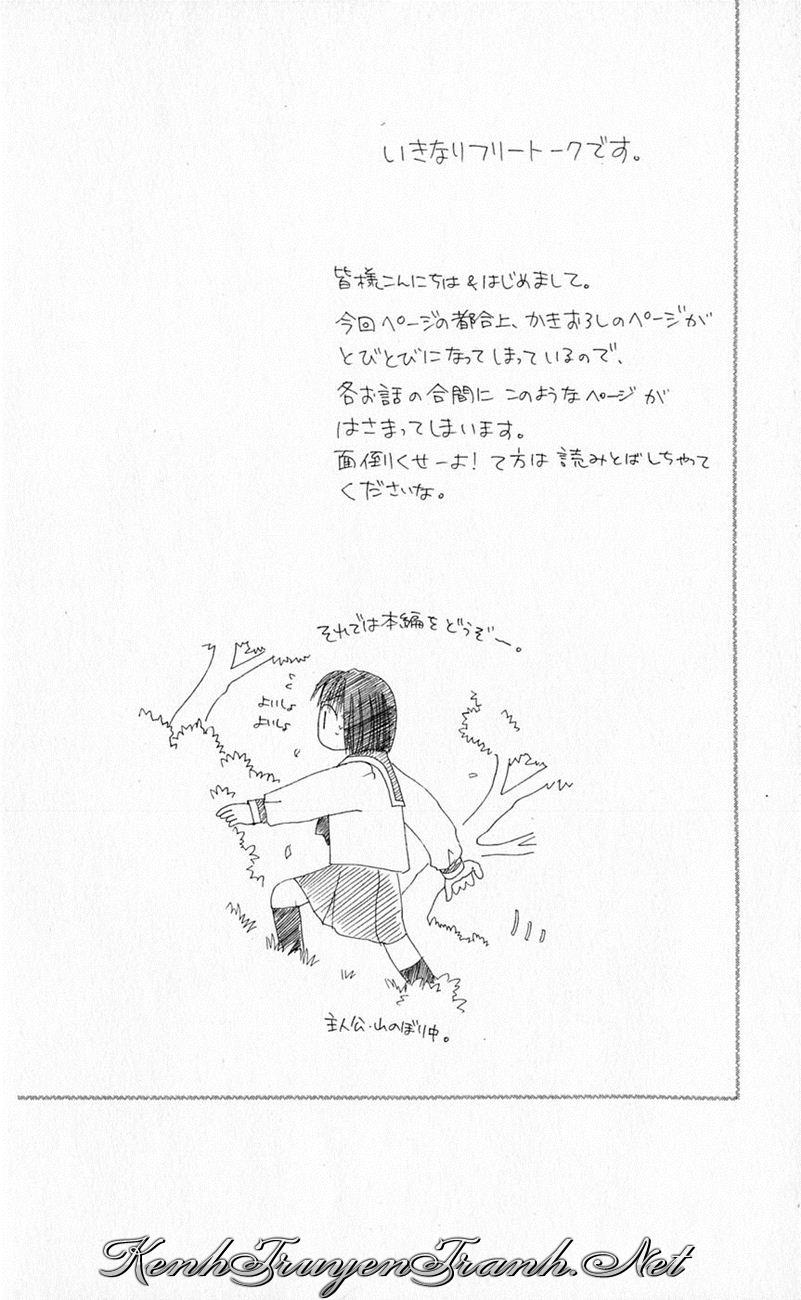 いきなりフリートークです。
皆様こんにちは&はじめまして。
今回ページの都合上、かきおろしのページが
とびとびになってしまっているので、
各お話の合間にこのようなページが
はさまってしまいます。
面倒くせーよ！て方は読みとばしちゃって
くださいな。
それでは本編をどうぞー。
よいしょ
よいしょ
主人公・山のぼり中。
KenhTruyenTranh.Net